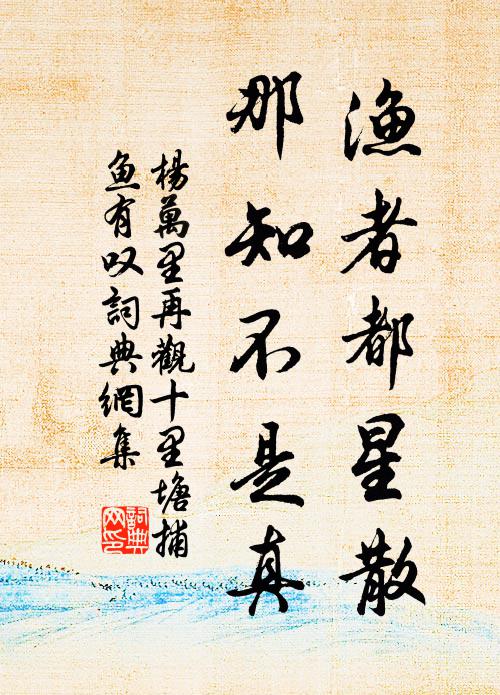 渔者都星散
那知不是真
楊萬里再觀十里塘捕
鱼有叹詞典網集
詞典
网印